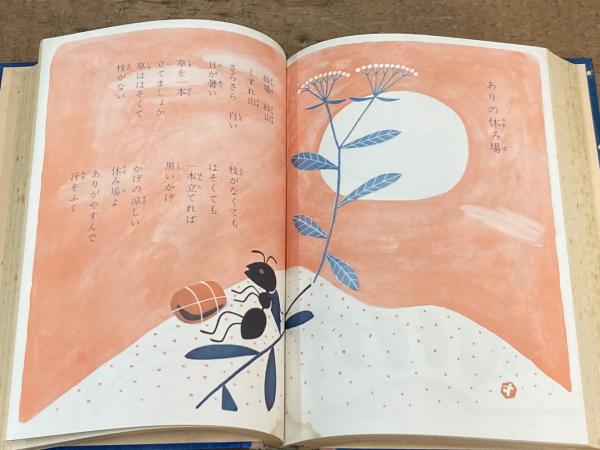 ありの休み場
砂場 砂山
くずれ山
さらさら 白い
日が暑い
草を一本
立てましょか
草はほそくて
枝がない
枝がなくても
ほそくても
一本立てれば
黒いかげ
かげの涼しい
休み場よ
ありがやすんで
汗をふく